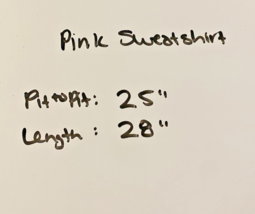 Pink Sweatshirt
Pit to Pit: 25"
Length: 28"